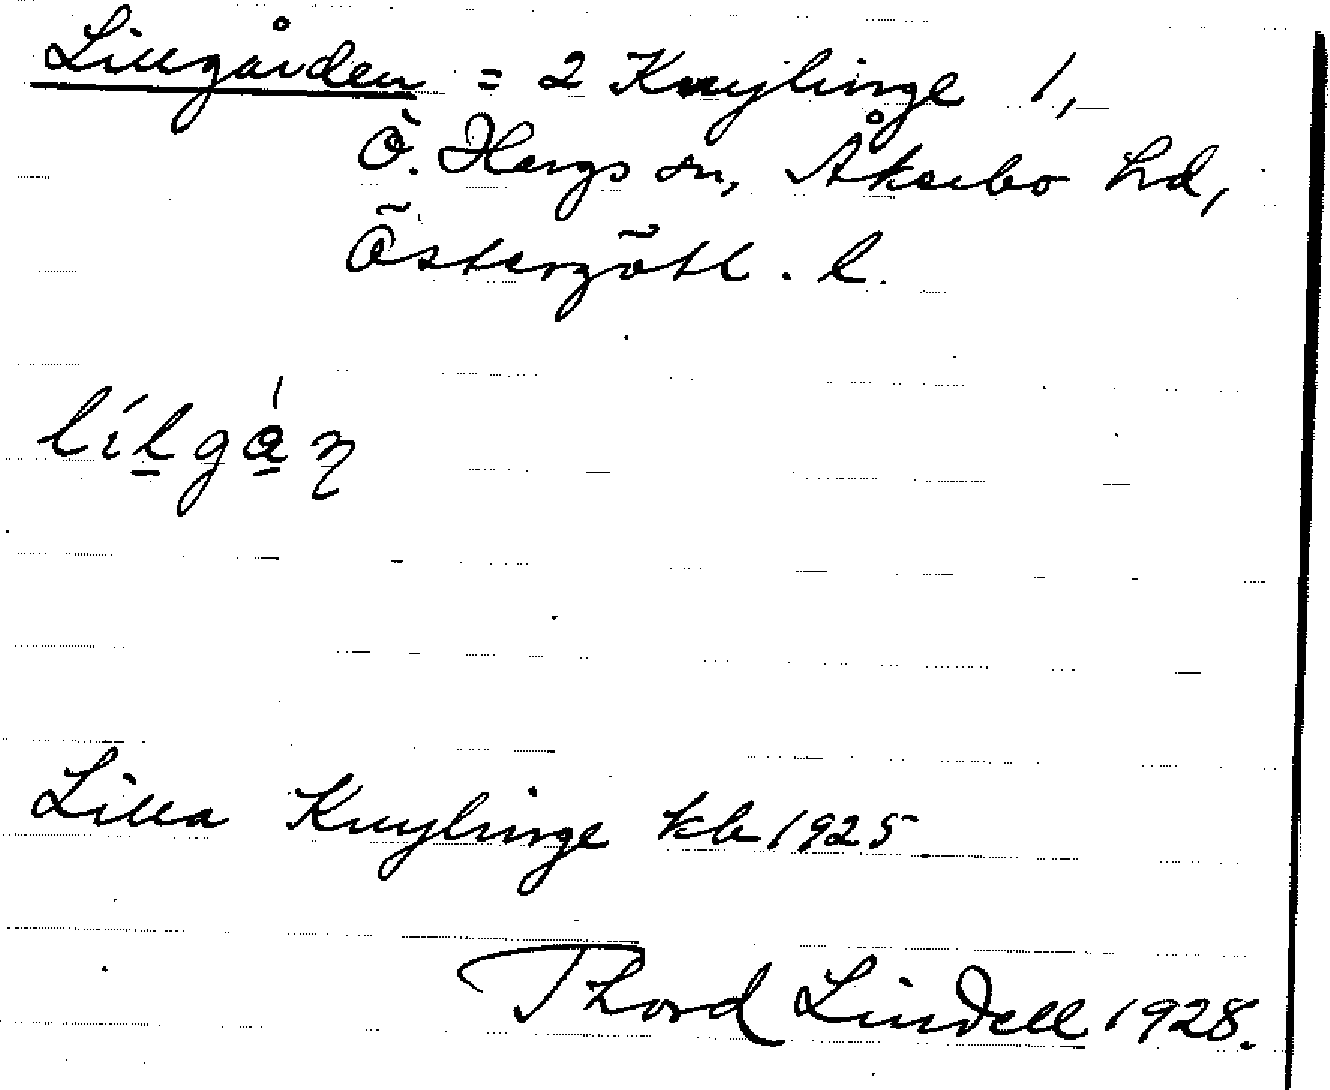 Lillgården = 2 Knylinge 1,
Ö. Hargs sn, Åkerbo hd,
Östergötl. l.
lílgá̱ɳ
Lilla Knylinge kb 1925
Thord Lindell 1928.